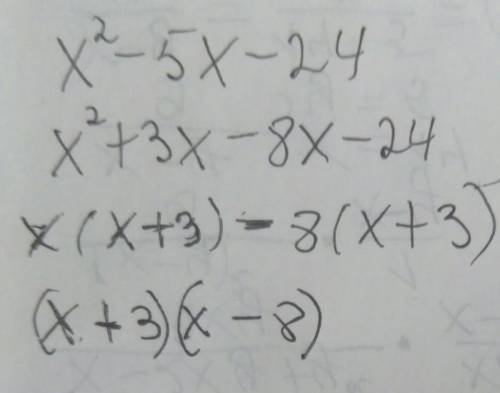 x² - 5x - 24
x² + 3x - 8x - 24
x(x+3) - 8(x+3)
(x+3)(x-8)